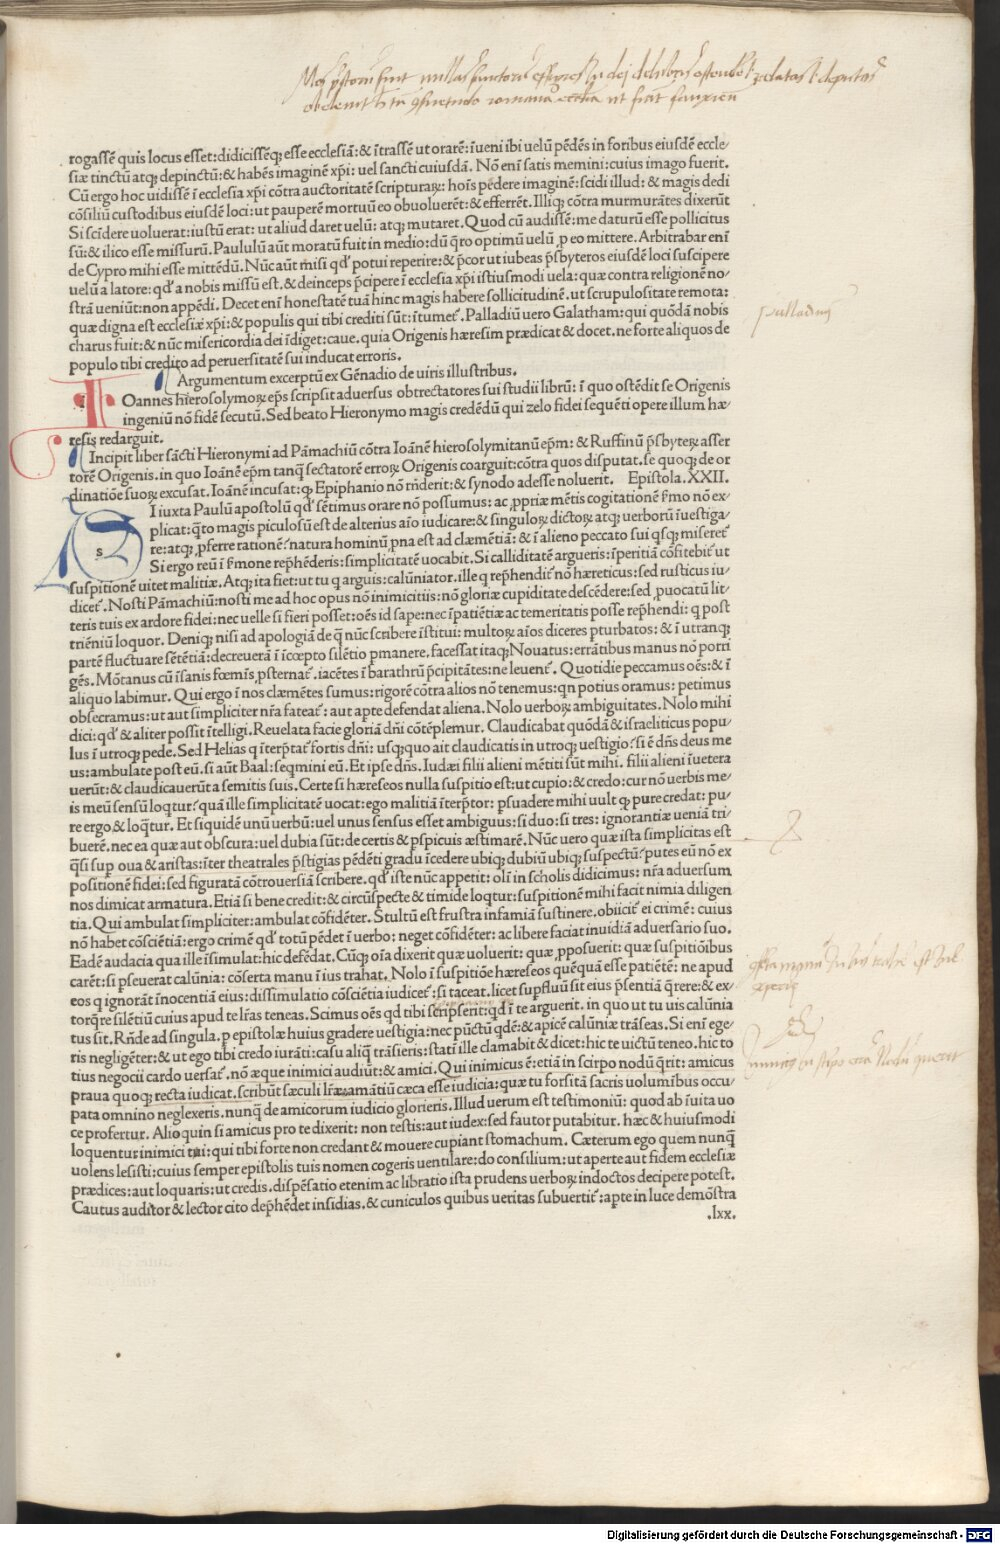 rogassẽ quis locus esset: didicissẽq; esse ecclesiã: & ĩtrassẽ ut orarẽ: ĩueni ibi uelũ pẽdẽs in foribus eiusdẽ eccle/
siæ tinctũ atq; depinctũ: & habẽs imaginẽ xp̃i: uel sancti cuiusdã. Nõ enĩ satis memini: cuius imago fuerit.
Cũ ergo hoc uidissẽ ĩ ecclesia xp̃i cõtra auctoritatẽ scripturaꝝ: hoĩs pẽdere imaginẽ: scidi illud: & magis dedi
cõsiliũ custodibus eiusdẽ loci: ut pauperẽ mortuũ eo obuoluerẽt: & efferrẽt. Illiq; cõtra murmurãtes dixerũt
Si scĩdere uoluerat: iustũ erat: ut aliud daret uelũ: atq; mutaret. Quod cũ audissẽ: me daturũ esse pollicitus
sũ: & ilico esse missurũ. Paululũ aũt moratũ fuit in medio: dũ q̃ro optimũ uelũ ꝓ eo mittere. Arbitrabar enĩ
de Cypro mihi esse mittẽdũ. Nũc aũt misi qđ potui reperire: & p̃cor ut iubeas p̃sbyteros eiusdẽ loci suscipere
uelũ a latore: qđ a nobis missũ est. & deinceps p̃cipere ĩ ecclesia xp̃i istiusmodi uela: quæ contra religionẽ no/
strã ueniũt: non appẽdi. Decet enĩ honestatẽ tuã hinc magis habere sollicitudinẽ. ut scrupulositate remota:
quæ digna est ecclesiæ xp̃i: & populis qui tibi crediti sũt: ĩtumet̃. Palladiũ uero Galatham: qui quõdã nobis
charus fuit: & nũc misericordia dei ĩdiget: caue. quia Origenis hæresim prædicat & docet. ne forte aliquos de
populo tibi credito ad peruersitatẽ sui inducat erroris.
Argumentum excerptũ ex Gẽnadio de uiris illustribus.
IOannes hierosolymoꝝ ep̃s scripsit aduersus obtrectatores sui studii librũ: ĩ quo ostẽdit se Origenis
ingeniũ nõ fidẽ secutũ. Sed beato Hieronymo magis credẽdũ qui zelo fidei sequẽti opere illum hæ
resis redarguit.
Incipit liber sãcti Hieronymi ad Pãmachiũ cõtra Ioãnẽ hierosolymitanũ ep̃m: & Ruffinũ p̃sbyteꝝ asser
torẽ Origenis. in quo Ioãnẽ ep̃m tanq̃ sectatorẽ erroꝝ Origenis coarguit: cõtra quos disputat. se quoq; de or
dinatiõe suoꝝ excusat. Ioãnẽ incusat: ꝙ Epiphanio nõ rñderit: & synodo adesse noluerit. Epistola. XXII.
SI iuxta Paulũ apostolũ qđ sẽtimus orare nõ possumus: ac ꝓpriæ mẽtis cogitationẽ s̃mo nõ ex/
plicat: q̃to magis piculosũ est de alterius aĩo iudicare: & singuloꝝ dictoꝝ atq; uerborũ ĩuestiga/
re: atq; ꝓferre rationẽ? natura hominũ ꝓna est ad clæmẽtiã: & ĩ alieno peccato sui qsq; miseret̃
Si ergo reũ ĩ s̃mone rep̃hẽderis: simplicitatẽ uocabit. Si calliditatẽ argueris: ĩperitiã cõfitebit̃ ut
suspitionẽ uitet malitiæ. Atq; ita fiet: ut tu q arguis: calũniator. ille q rep̃hẽdit̃ nõ hæreticus: sed rusticus iu/
dicet̃. Nosti Pãmachiũ: nosti me ad hoc opus nõ inimicitiis: nõ gloriæ cupiditate descẽdere: sed ꝓuocatũ lit/
teris tuis ex ardore fidei: nec uelle si fieri posset: oẽs id sape: nec ĩpatiẽtiæ ac temeritatis posse rep̃hendi: q post
triẽniũ loquor. Deniq; nisi ad apologiã de q̃ nũc scribere ĩstitui: multoꝝ aĩos diceres pturbatos: & ĩ utranq;
partẽ fluctuare sẽtẽtiã: decreuerã ĩ ĩcœpto silẽtio pmanere. facessat itaq; Nouatus: errãtibus manus nõ porri
gẽs. Mõtanus cũ ĩsanis fœmĩs ꝓsternat̃. iacẽtes ĩ barathrũ p̃cipitãtes: ne leuent̃. Quotidie peccamus oẽs: & ĩ
aliquo labimur. Qui ergo ĩ nos clæmẽtes sumus: rigorẽ cõtra alios nõ tenemus: qn potius oramus: petimus
obsecramus: ut aut simpliciter nr̃a fateat̃: aut apte defendat aliena. Nolo uerboꝝ ambiguitates. Nolo mihi
dici: qđ & aliter possit ĩtelligi. Reuelata facie gloriã dñi cõtẽplemur. Claudicabat quõdã & israeliticus popu/
lus ĩ utroq; pede. Sed Helias q ĩterp̃tat̃ fortis dñi: usq;quo ait claudicatis in utroq; uestigio? si ẽ dñs deus me
us: ambulate post eũ. si aũt Baal: seqmini eũ. Et ipse dñs. Iudæi filii alieni mẽtiti sũt mihi. filii alieni ĩuetera
uerũt: & claudicauerũt a semitis suis. Certe si hæreseos nulla suspitio est: ut cupio: & credo: cur nõ uerbis me/
is meũ sensũ loqtur? quã ille simplicitatẽ uocat: ego malitiã ĩterp̃tor: psuadere mihi uult ꝙ pure credat: pu/
re ergo & loq̃tur. Et siquidẽ unũ uerbũ: uel unus sensus esset ambiguus: si duo: si tres: ignorantiæ ueniã tri/
buerẽ. nec ea quæ aut obscura: uel dubia sũt: de certis & pspicuis æstimarẽ. Nũc uero quæ ista simplicitas est
q̃si sup oua & aristas: ĩter theatrales p̃stigias pẽdẽti gradu ĩcedere ubiq; dubiũ ubiq; suspectũ? putes eũ nõ ex
positionẽ fidei: sed figuratã cõtrouersiã scribere. qđ iste nũc appetit: olĩ in scholis didicimus: nr̃a aduersum
nos dimicat armatura. Etiã si bene credit: & circũspecte & timide loqtur: suspitionẽ mihi facit nimia diligen
tia. Qui ambulat simpliciter: ambulat cõfidẽter. Stultũ est frustra infamiã sustinere. obiicit̃ ei crimẽ: cuius
nõ habet cõsciẽtiã: ergo crimẽ qđ totũ pẽdet ĩ uerbo: neget cõfidẽter: ac libere faciat inuidiã aduersario suo.
Eadẽ audacia qua ille ĩsimulat: hic defẽdat. Cũq; oĩa dixerit quæ uoluerit: quæ ꝓposuerit: quæ suspitiõibus
carẽt: si pseuerat calũnia: cõserta manu ĩ ius trahat. Nolo ĩ suspitiõe hæreseos quẽquã esse patiẽtẽ: ne apud
eos q ignorãt ĩnocentiã eius: dissimulatio cõsciẽtia iudicet̃: si taceat. licet supfluũ sit eius p̃sentiã q̃rere: & ex/
torq̃re silẽtiũ cuius apud te lr̃as teneas. Scimus oẽs qđ tibi scripserit: qđ ĩ te arguerit. in quo ut tu uis calũnia
tus sit. Rñde ad singula. p epistolæ huius gradere uestigia: nec pũctũ qdẽ: & apicẽ calũniæ trãseas. Si enĩ ege/
ris negligẽter: & ut ego tibi credo iurãti: casu aliq̃ trãsieris: statĩ ille clamabit & dicet: hic te uictũ teneo. hic to
tius negocii cardo uersat̃. nõ æque inimici audiũt: & amici. Qui inimicus ẽ: etiã in scirpo nodũ q̃rit: amicus
praua quoq; recta iudicat. scribũt sæculi lr̃æ amãtiũ cæca esse iudicia: quæ tu forsitã sacris uolumibus occu/
pata omnino neglexeris. nunq̃ de amicorum iudicio glorieris. Illud uerum est testimoniũ: quod ab ĩuita uo
ce profertur. Alioquin si amicus pro te dixerit: non testis: aut iudex: sed fautor putabitur. hæc & huiusmodi
loquentur inimici tui: qui tibi forte non credant & mouere cupiant stomachum. Cæterum ego quem nunq̃
uolens lesisti: cuius semper epistolis tuis nomen cogeris uentilare: do consilium: ut aperte aut fidem ecclesiæ
prædices: aut loquaris: ut credis. dispẽsatio etenim ac libratio ista prudens uerboꝝ indoctos decipere potest.
Cautus auditor & lector cito dep̃hẽdet insidias. & cuniculos quibus ueritas subuertit̃: apte in luce demõstra
.lxx.
palladius
Digitalisierung gefördert durch die Deutsche Forschungsgemeinschaft - DFG